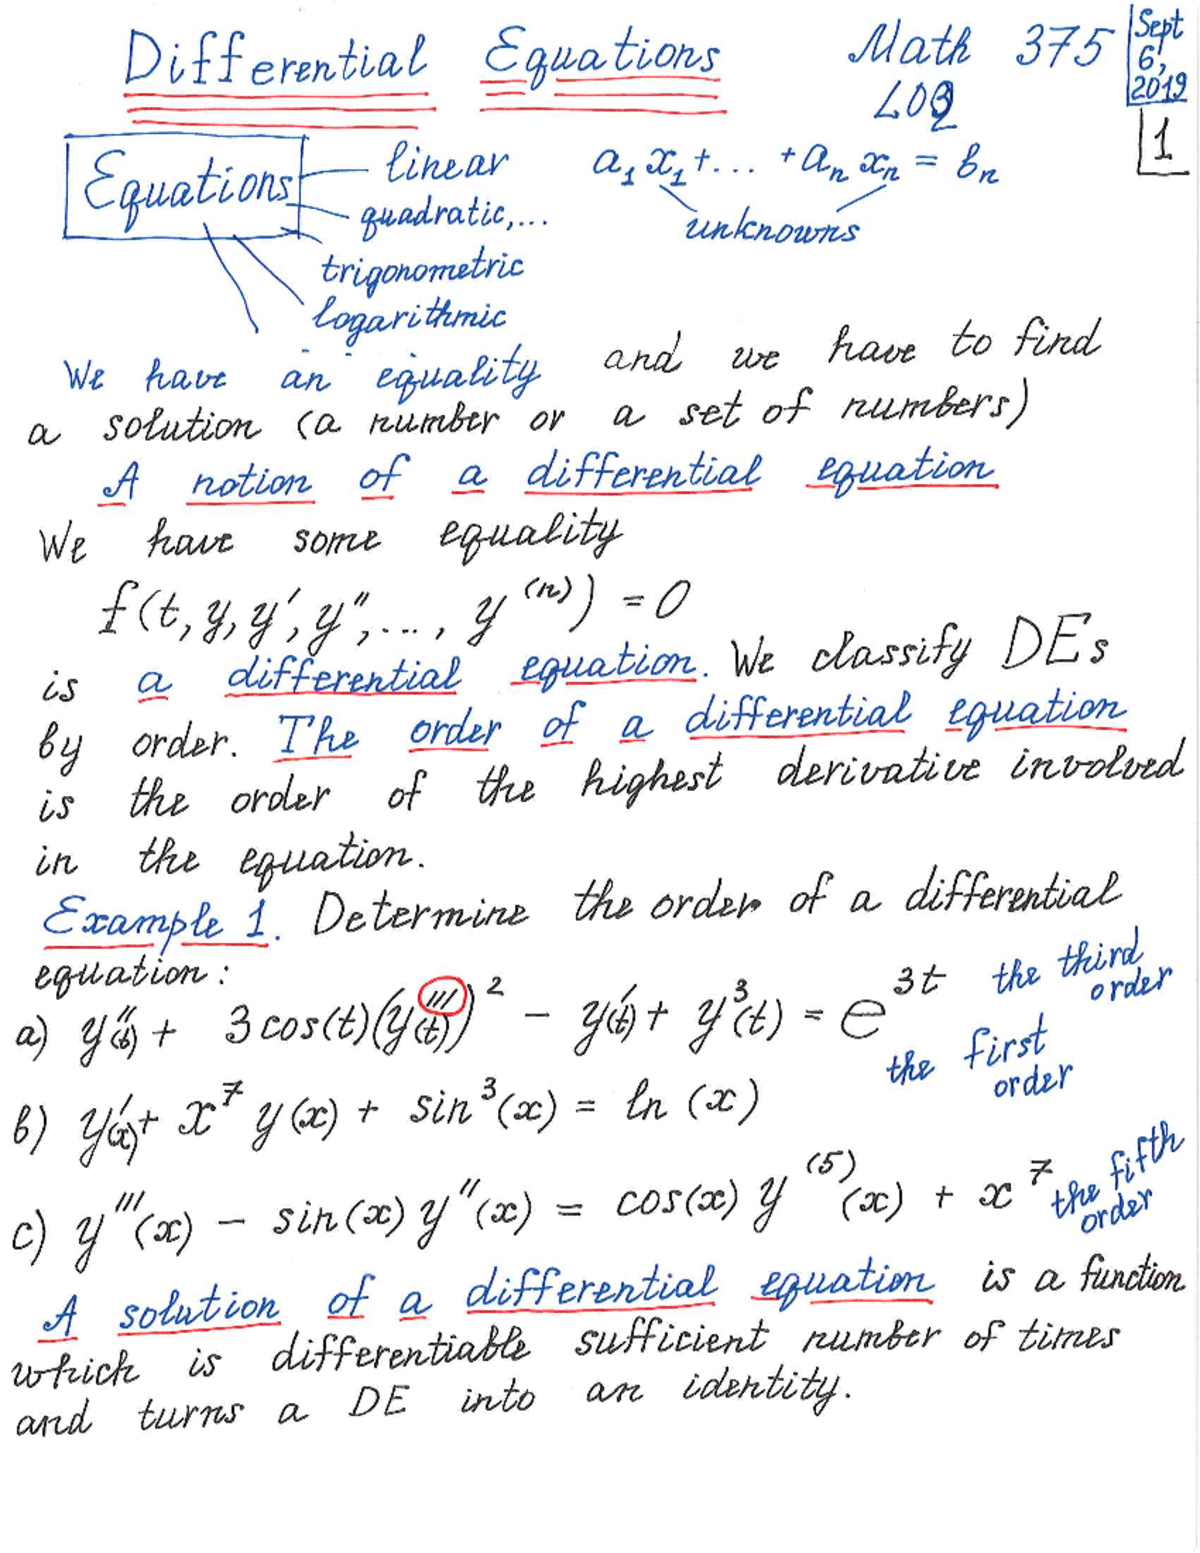 Differential Equations Math 375 Sept 6, 2019
L02
1
Equations linear a₁x₁+... +aₙxₙ = bₙ
quadratic,... unknowns
trigonometric
logarithmic
We have an equality and we have to find
a solution (a number or a set of numbers)
A notion of a differential equation
We have some equality
f(t, y, y′, y″,..., y⁽ⁿ⁾) = 0
is a differential equation. We classify DEs
by order. The order of a differential equation
is the order of the highest derivative involved
in the equation.
Example 1. Determine the order of a differential
equation:
a) y″(t) + 3cos(t)(y‴(t))² − y′(t) + y³(t) = e³ᵗ the third order
b) y′(x) + x⁷ y(x) + sin³(x) = ln(x) the first order
c) y‴(x) − sin(x) y″(x) = cos(x) y⁽⁵⁾(x) + x⁷ the fifth order
A solution of a differential equation is a function
which is differentiable sufficient number of times
and turns a DE into an identity.